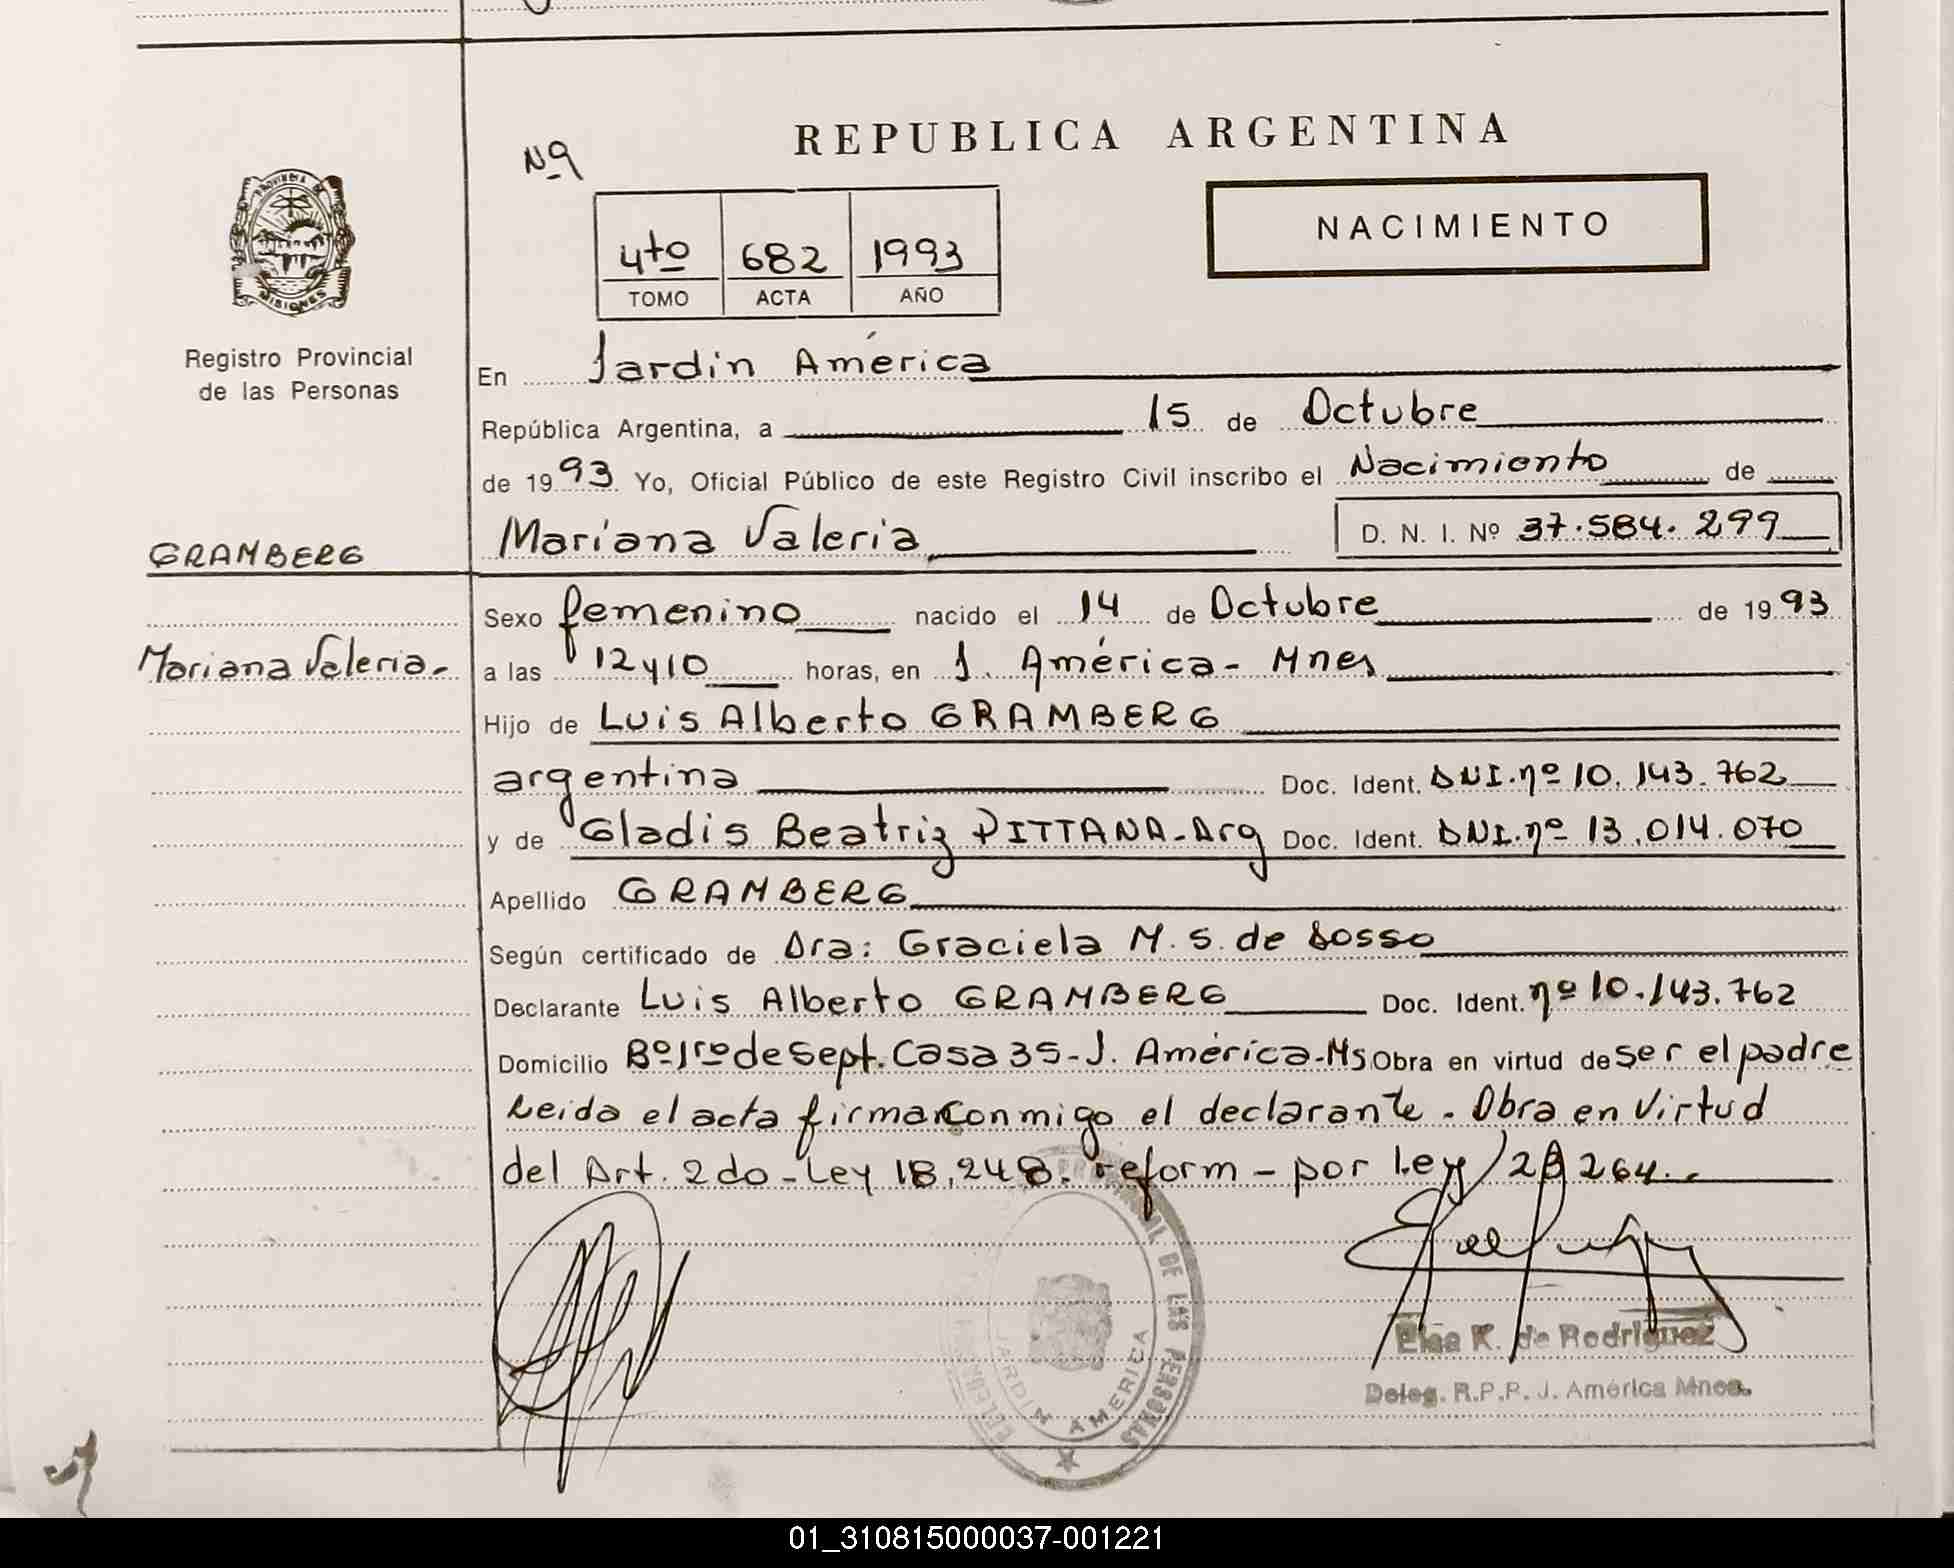 REPUBLICA ARGENTINA
Nº
NACIMIENTO
4to 682 1993
TOMO ACTA AÑO
PROVINCIA DE
MISIONES
Registro Provincial
de las Personas
En Jardin América
República Argentina, a 15 de Octubre
de 1993 Yo, Oficial Público de este Registro Civil inscribo el Nacimiento de
GRAMBERG
Mariana Valeria D. N. I. Nº 37.584.299
Sexo femenino nacido el 14 de Octubre de 1993
Mariana Valeria.-
a las 12y10 horas, en J. América - Mnes
Hijo de Luis Alberto GRAMBERG
argentina Doc. Ident. DNI. nº 10.143.762
y de Gladis Beatriz PITTANA - Arg Doc. Ident. DNI. nº 13.014.070
Apellido GRAMBERG
Según certificado de Dra: Graciela M. S. de Sosso
Declarante Luis Alberto GRAMBERG Doc. Ident. nº 10.143.762
Domicilio Bº 1ro de Sept. Casa 35 - J. América - Ms Obra en virtud de ser el padre
Leida el acta firma conmigo el declarante. Obra en Virtud
del Art. 2do - Ley 18.248. reform - por Ley 23264.-
PROVINCIAL DE LAS PERSONAS
JARDIN AMERICA
Elsa K. de Rodriguez
Deleg. R.P.P. J. América Mnes.
01_310815000037-001221